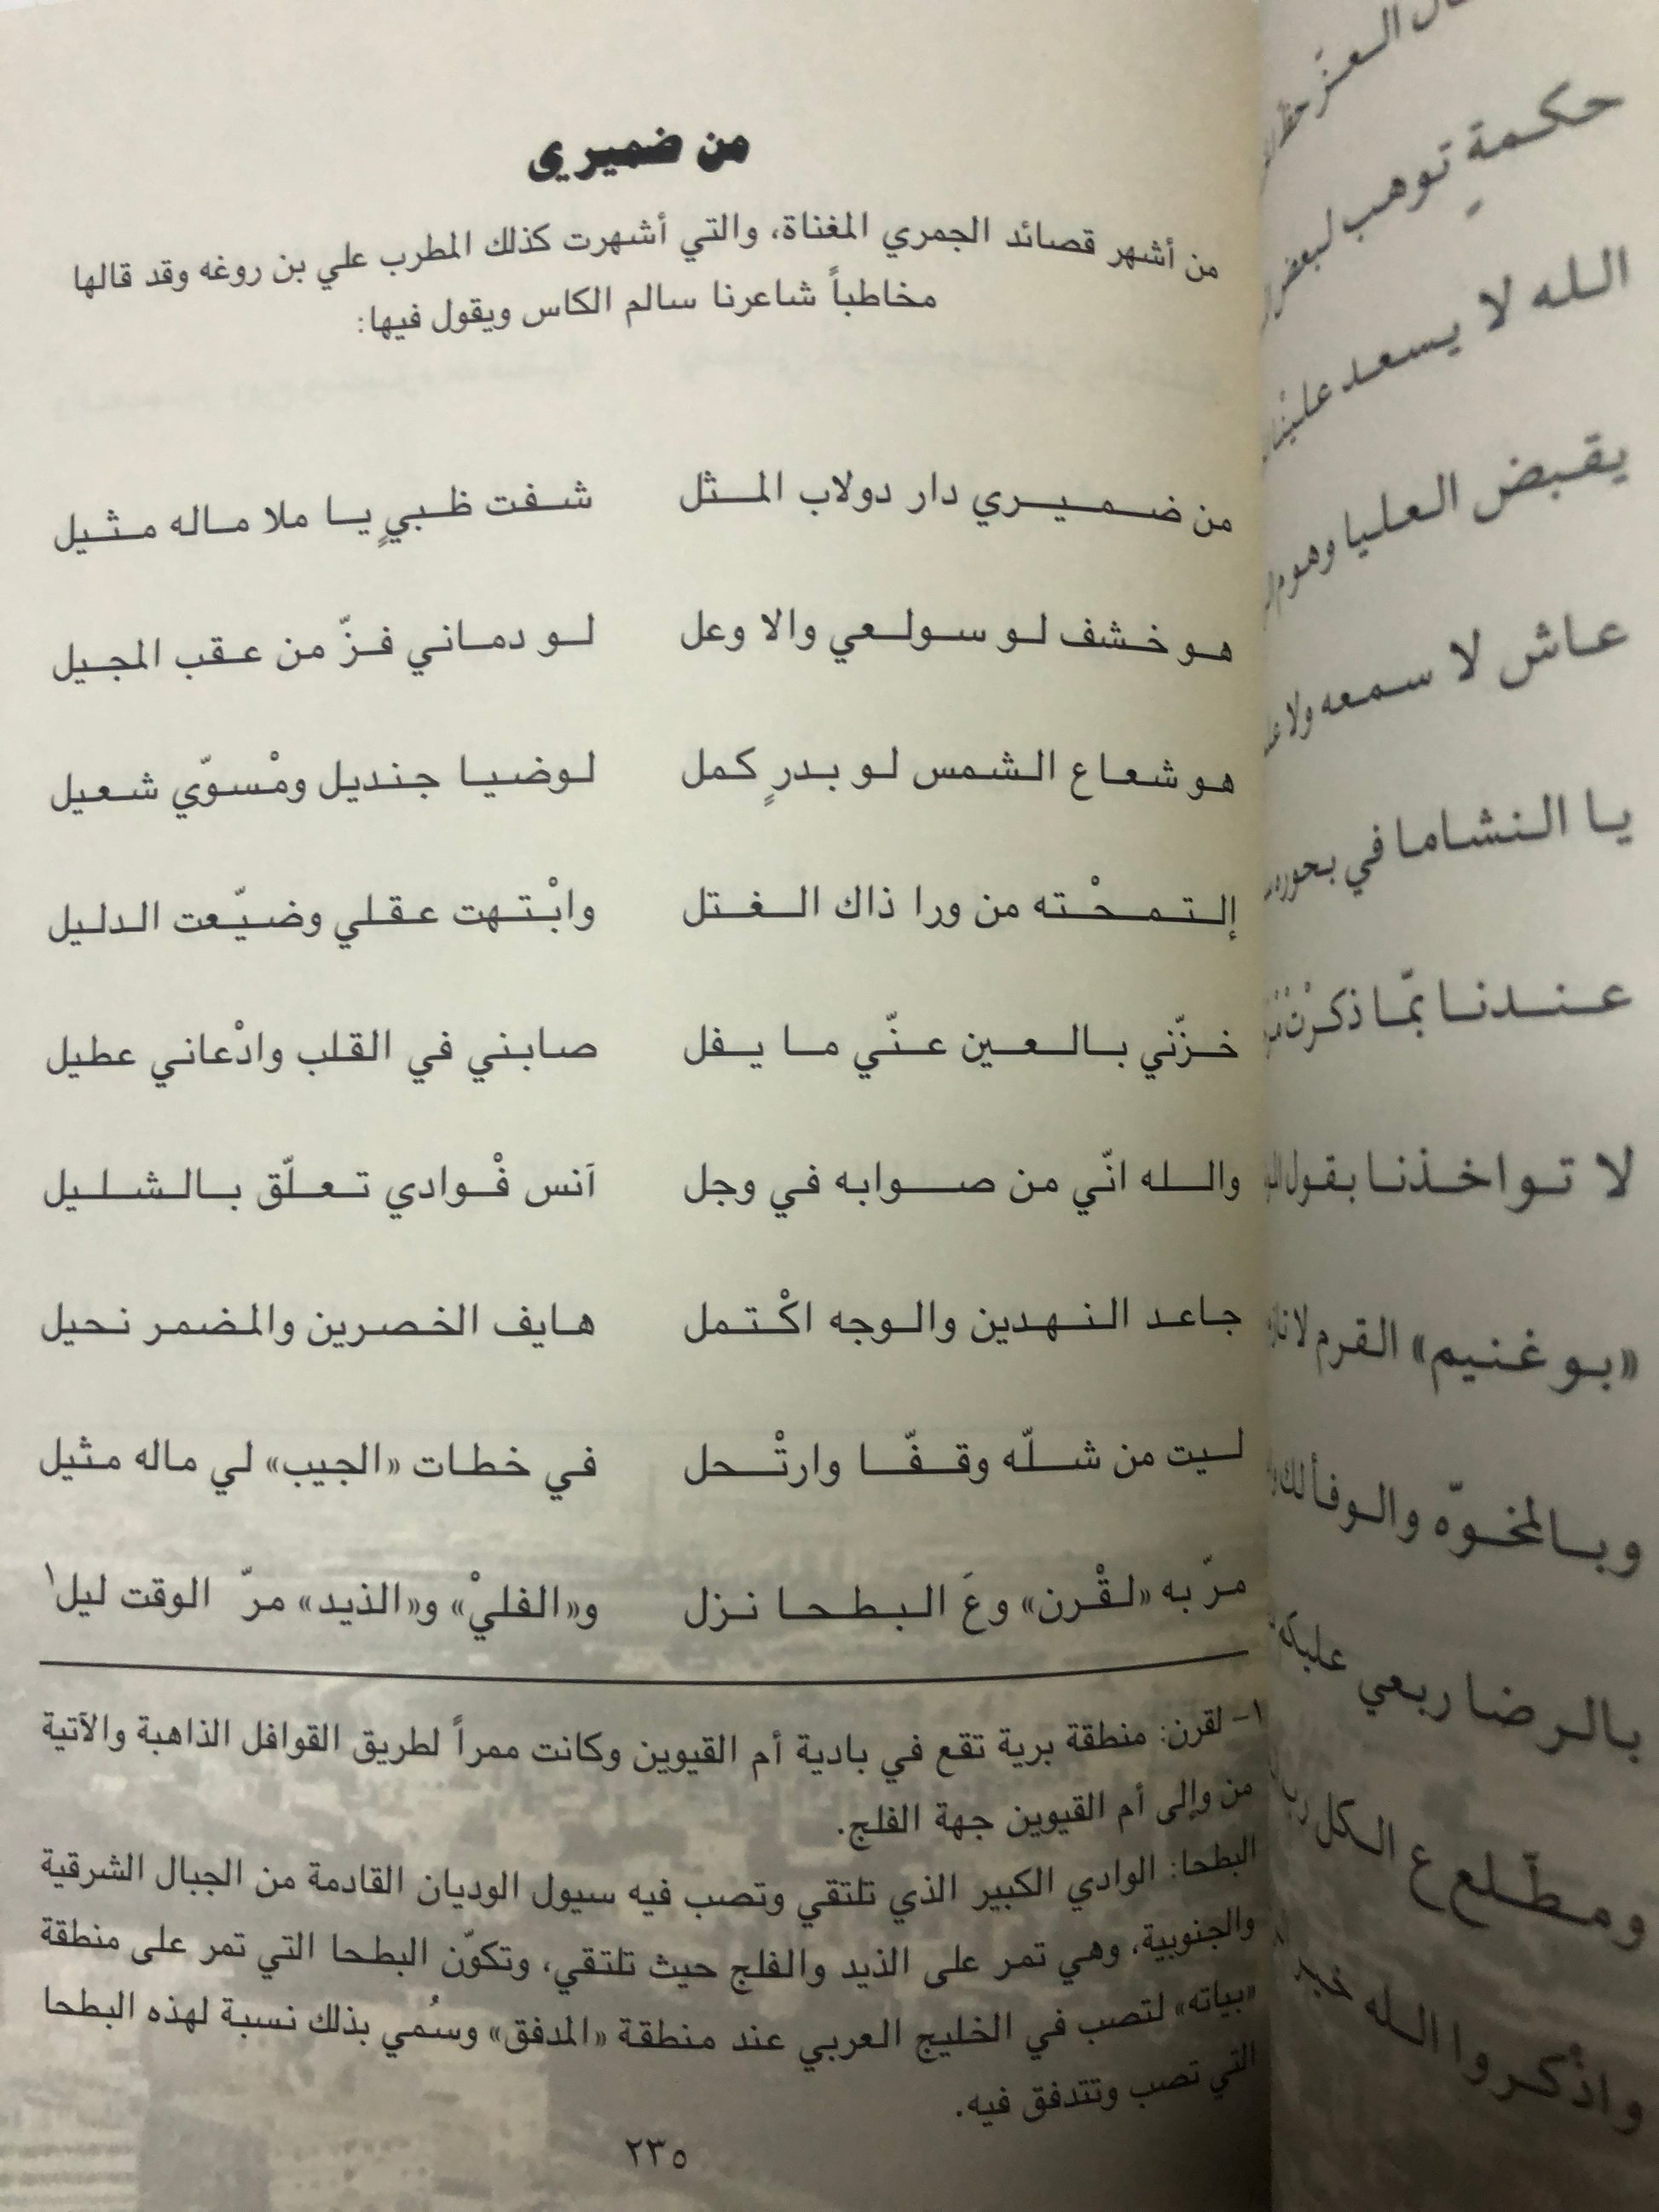 من ضميري
من أشهر قصائد الجمري المغناة، والتي أشهرت كذلك المطرب علي بن روغه وقد قالها
مخاطباً شاعرنا سالم الكاس ويقول فيها:
من ضميري دار دولاب المثل شفت ظبيٍ يا ملا ماله مثيل
هو خشف لو سولعي والا وعل لو دماني فزّ من عقب المجيل
هو شعاع الشمس لو بدرٍ كمل لوضيا جنديل ومْسوّي شعيل
إلتمحْته من ورا ذاك الغتل وابْتهت عقلي وضيّعت الدليل
خزّني بالعين عنّي ما يفل صابني في القلب وادْعاني عطيل
والله انّي من صوابه في وجل آنس فْوادي تعلّق بالشليل
جاعد النهدين والوجه اكْتمل هايف الخصرين والمضمر نحيل
ليت من شلّه وقفّا وارتْحل في خطات «الجيب» لي ماله مثيل
مرّ به «لقْرن» وعَ البطحا نزل و«الفليْ» و«الذيد» مرّ الوقت ليل١
١- لقرن: منطقة برية تقع في بادية أم القيوين وكانت ممراً لطريق القوافل الذاهبة والآتية
من وإلى أم القيوين جهة الفلج.
البطحا: الوادي الكبير الذي تلتقي وتصب فيه سيول الوديان القادمة من الجبال الشرقية
والجنوبية، وهي تمر على الذيد والفلج حيث تلتقي، وتكوّن البطحا التي تمر على منطقة
«بياته» لتصب في الخليج العربي عند منطقة «المدفق» وسُمي بذلك نسبة لهذه البطحا
التي تصب وتتدفق فيه.
٢٣٥
حكمةٍ توهب لبعض
الله لا يسعد
يقبض العليا
عاش لا سمعه ولا
يا النشاما في
عندنا بمّا
لا تواخذنا بقول
«بو غنيم» القرم
وبالمخوّه والوفا لك
بالرضا ربعي
ومطّلع ع الكل
واذْكروا الله